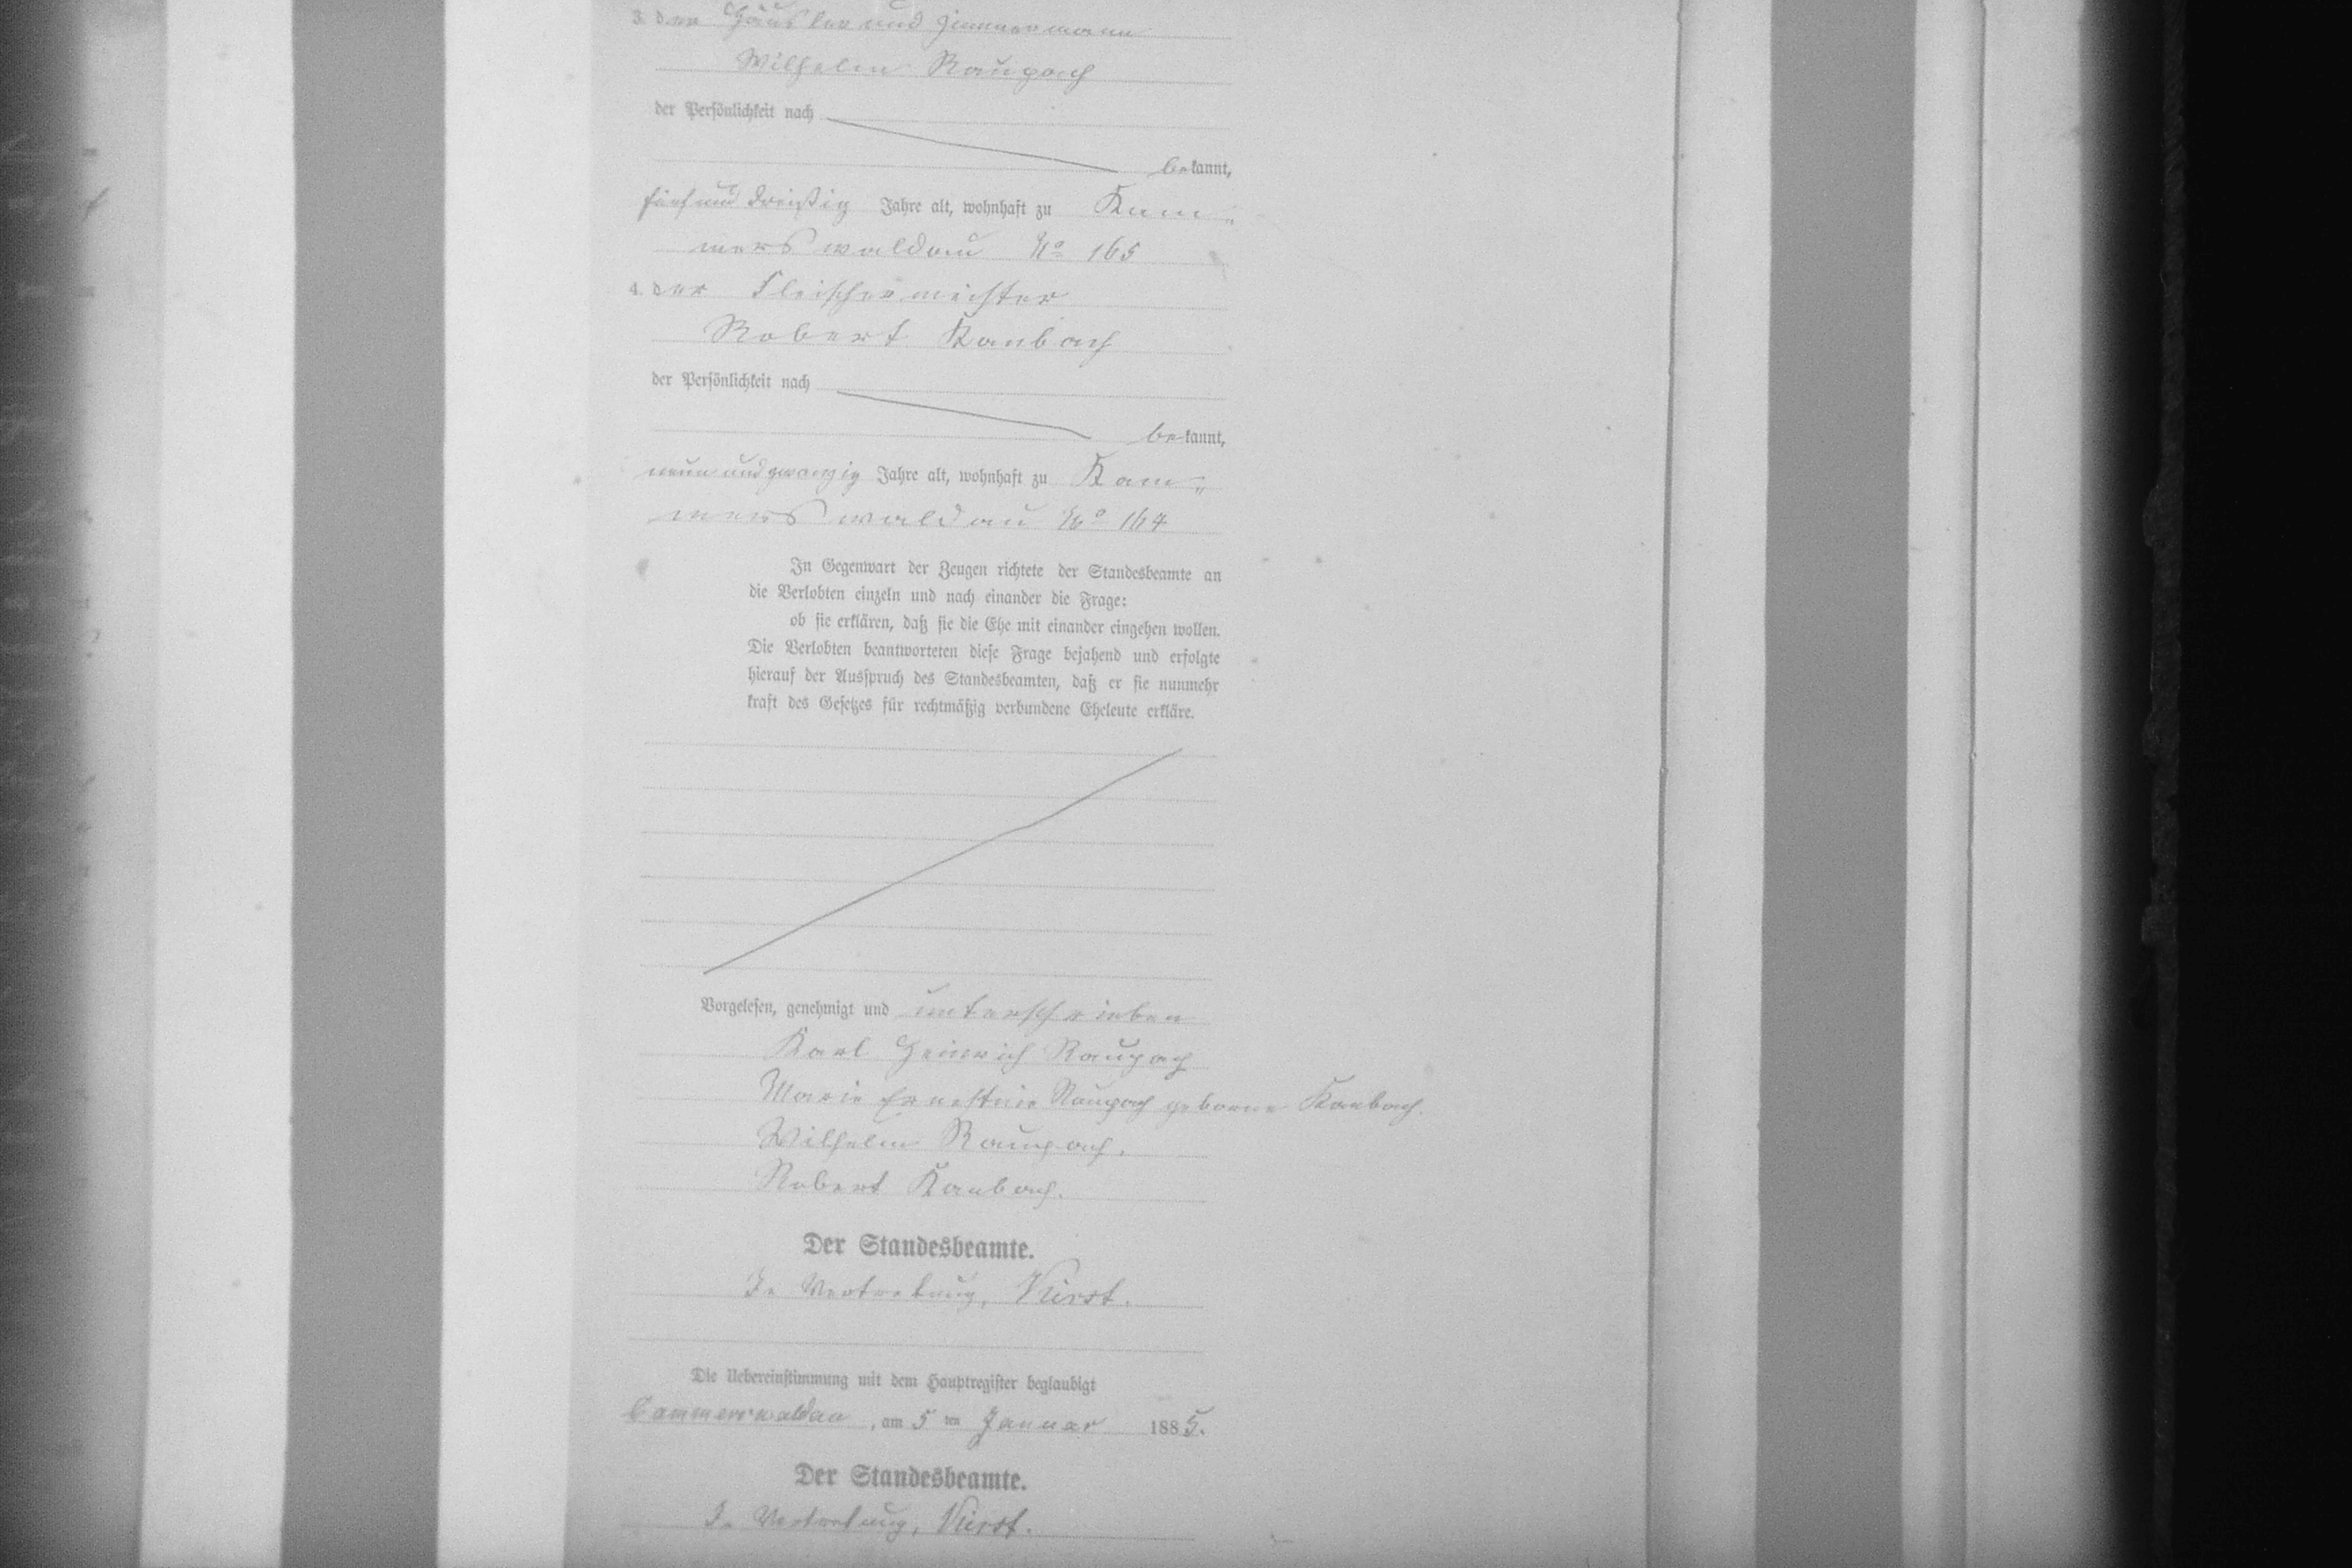 3. der Häusler und Zimmermann
Wilhelm Raupach
der Persönlichkeit nach
bekannt,
fünf und dreißig Jahre alt, wohnhaft zu Kam=
merswaldau No 165
4. der Fleischermeister
Robert Kambach
der Persönlichkeit nach
bekannt,
neun und zwanzig Jahre alt, wohnhaft zu Kam=
merswaldau No 164
In Gegenwart der Zeugen richtete der Standesbeamte an
die Verlobten einzeln und nach einander die Frage:
ob sie erklären, daß sie die Ehe mit einander eingehen wollen.
Die Verlobten beantworteten diese Frage bejahend und erfolgte
hierauf der Ausspruch des Standesbeamten, daß er sie nunmehr
kraft des Gesetzes für rechtmäßig verbundene Eheleute erkläre.
Vorgelesen, genehmigt und unterschrieben
Karl Heinrich Raupach
Marie Ernestine Raupach geborene Kambach.
Wilhelm Raupach.
Robert Kambach.
Der Standesbeamte.
In Vertretung,
Die Uebereinstimmung mit dem Hauptregister beglaubigt
Cammerswaldau, am 5 ten Januar 1885.
Der Standesbeamte.
In Vertretung,